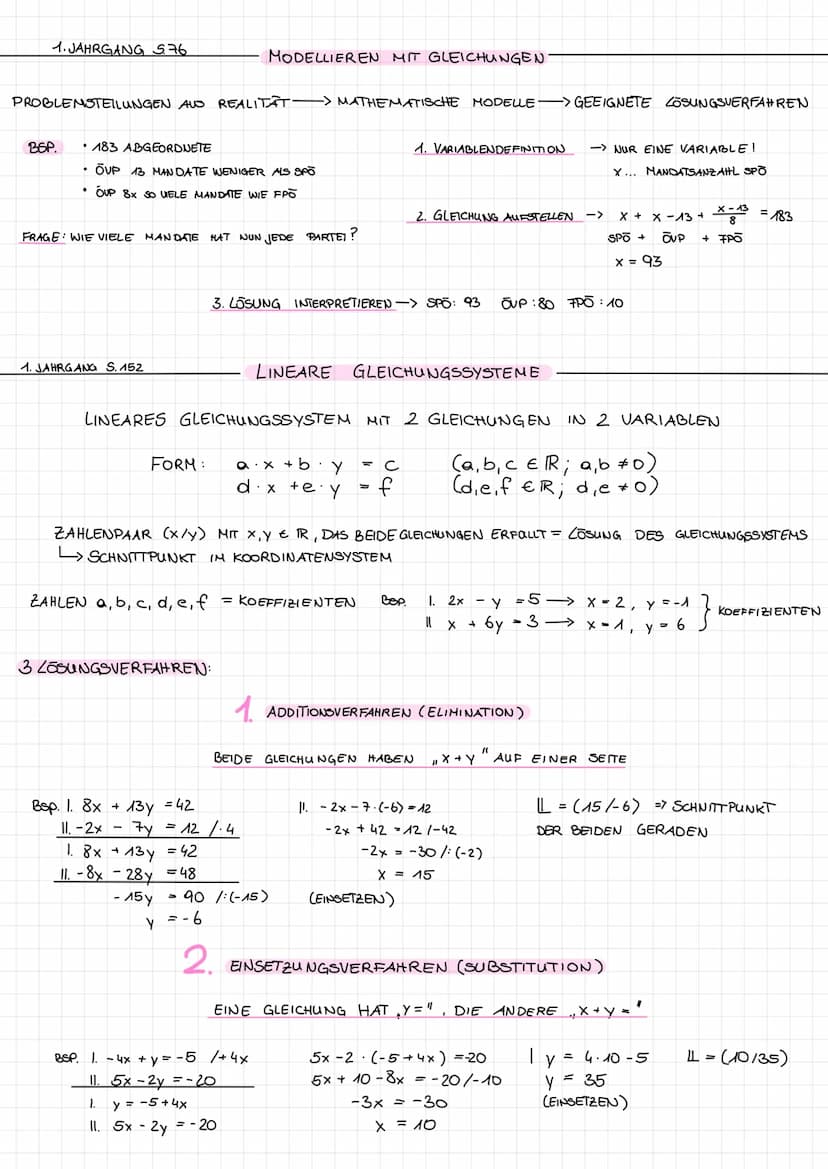 1. JAHRGANG S.76
MODELLIEREN MIT GLEICHUNGEN
PROBLEMSTELLUNGEN AUS REALITÄT → MATHEMATISCHE MODELLE → GEEIGNETE LÖSUNGSVERFAHREN
BSP. • 183 ABGEORDNETE
• ÖVP 13 MANDATE WENIGER ALS SPÖ
• ÖVP 8x SO VIELE MANDATE WIE FPÖ
FRAGE: WIE VIELE MANDATE HAT NUN JEDE PARTEI?
1. VARIABLENDEFINITION → NUR EINE VARIABLE!
x ... MANDATSANZAHL SPÖ
2. GLEICHUNG AUFSTELLEN → x + x - 13 + (x-13)/8 = 183
SPÖ + ÖVP + FPÖ
x = 93
3. LÖSUNG INTERPRETIEREN → SPÖ: 93 ÖVP: 80 FPÖ: 10
1. JAHRGANG S. 152
LINEARE GLEICHUNGSSYSTEME
LINEARES GLEICHUNGSSYSTEM MIT 2 GLEICHUNGEN IN 2 VARIABLEN
FORM: a · x + b · y = c (a, b, c ∈ ℝ; a, b ≠ 0)
d · x + e · y = f (d, e, f ∈ ℝ; d, e ≠ 0)
ZAHLENPAAR (x/y) MIT x, y ∈ ℝ, DAS BEIDE GLEICHUNGEN ERFÜLLT = LÖSUNG DES GLEICHUNGSSYSTEMS
↳ SCHNITTPUNKT IM KOORDINATENSYSTEM
ZAHLEN a, b, c, d, e, f = KOEFFIZIENTEN
BSP. I. 2x - y = 5 → x = 2, y = -1
II x + 6y = 3 → x = 1, y = 6
} KOEFFIZIENTEN
3 LÖSUNGSVERFAHREN:
1. ADDITIONSVERFAHREN (ELIMINATION)
BEIDE GLEICHUNGEN HABEN „x + y" AUF EINER SEITE
BSP. I. 8x + 13y = 42
II. -2x - 7y = 12 /· 4
I. 8x + 13y = 42
II. -8x - 28y = 48
-15y = 90 /:(-15)
y = -6
II. -2x - 7·(-6) = 12
-2x + 42 = 12 /-42
-2x = -30 /:(-2)
x = 15
(EINSETZEN)
𝕃 = (15/-6) ⇒ SCHNITTPUNKT
DER BEIDEN GERADEN
2. EINSETZUNGSVERFAHREN (SUBSTITUTION)
EINE GLEICHUNG HAT „y=", DIE ANDERE „x + y ="
BSP. I. -4x + y = -5 /+4x
II. 5x - 2y = -20
I. y = -5 + 4x
II. 5x - 2y = -20
5x - 2 · (-5 + 4x) = -20
5x + 10 - 8x = -20 /-10
-3x = -30
x = 10
I y = 4 · 10 - 5
y = 35
(EINSETZEN)
𝕃 = (10/35)